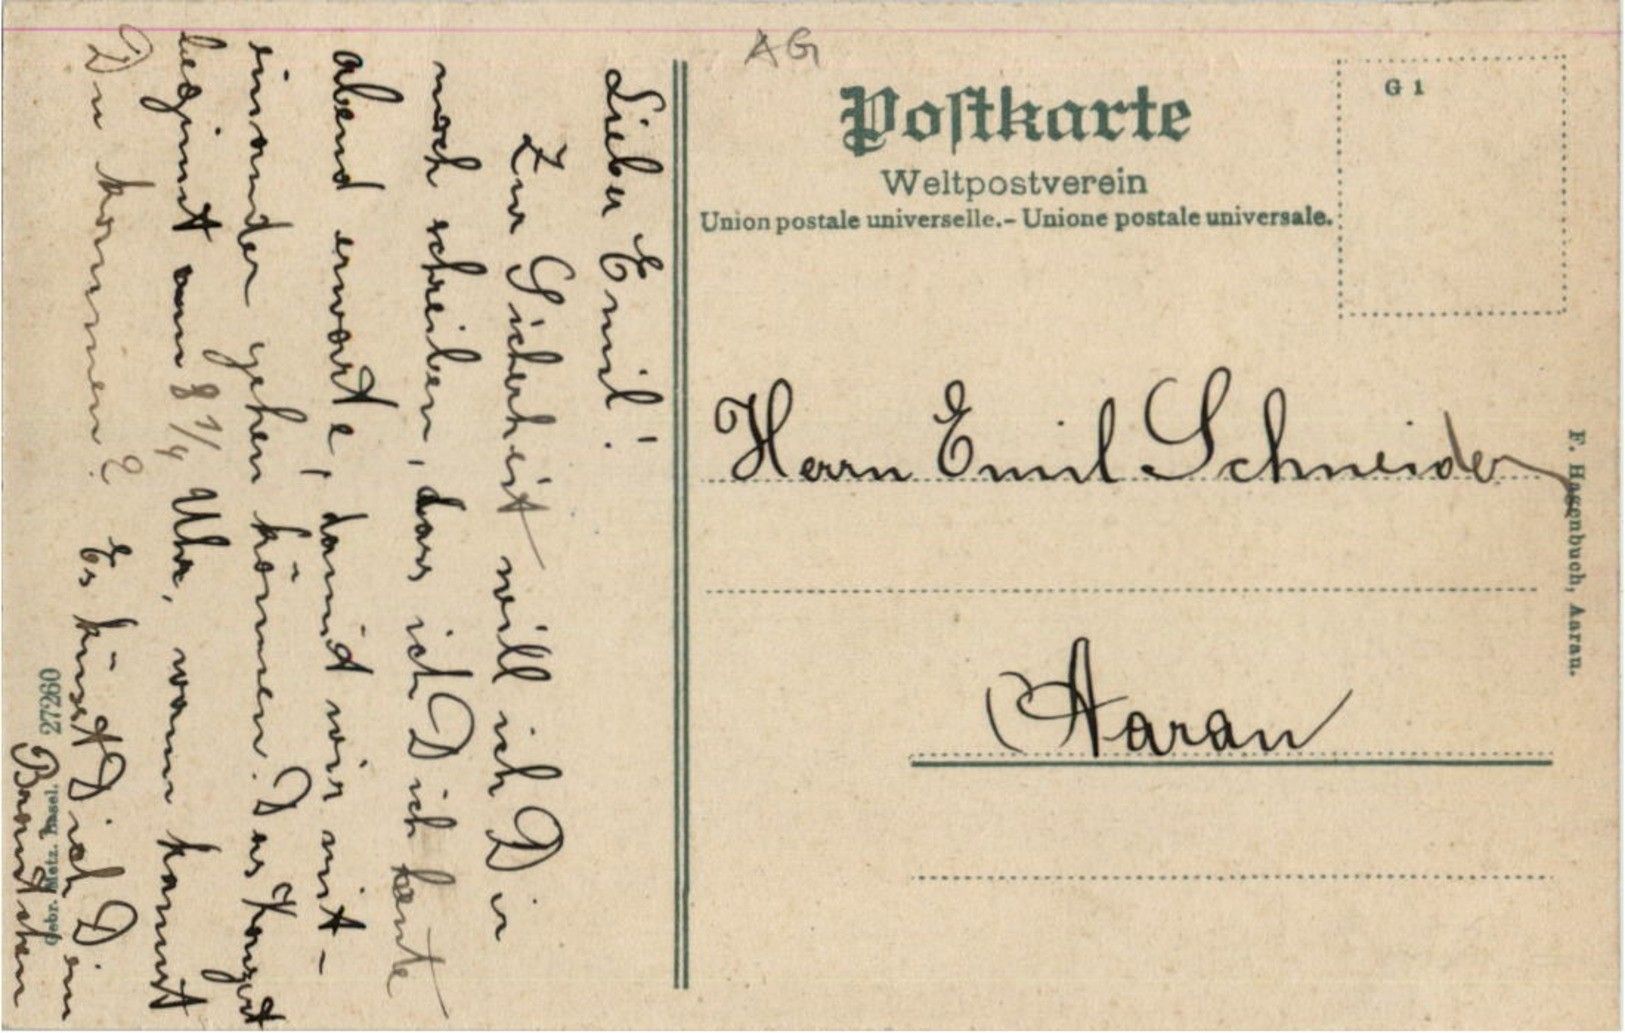 Lieber Emil!
Zur Sicherheit will ich Dir
noch schreiben, dass ich Dich heute
abend erwarte, damit wir mit-
einander gehen können. Das Konzert
beginnt um 8 1/4 Uhr, wann kannst
Du kommen? Es küsst Dich Dein
27260
Gebr. Metz, Basel.
AG
Postkarte
Weltpostverein
Union postale universelle.- Unione postale universale.
G 1
Herrn Emil Schneider
Aarau
F. Hagenbuch, Aarau.